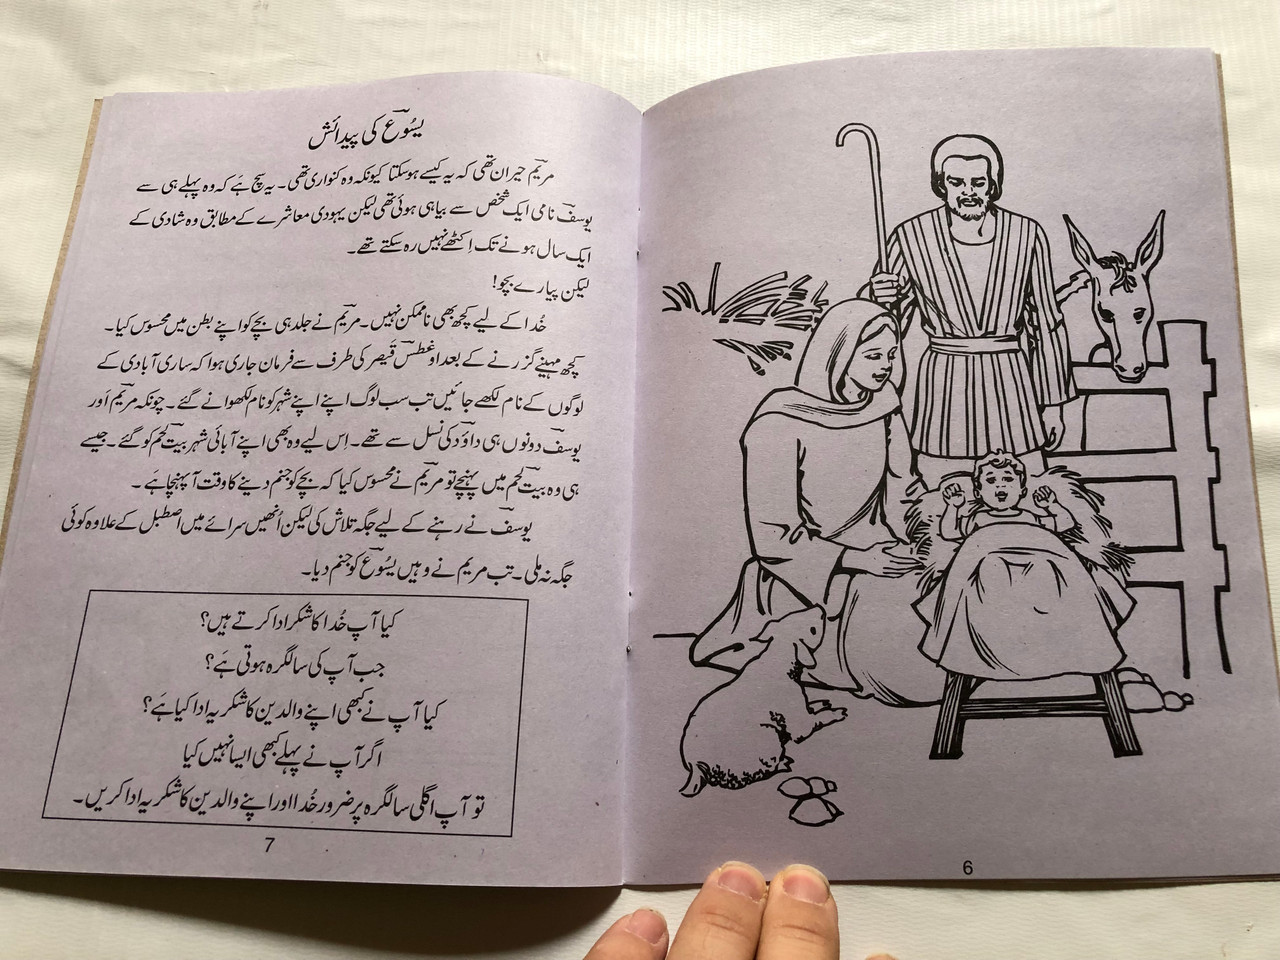 یسُوعؔ کی پیدائش
مریمؔ حیران تھی کہ یہ کیسے ہوسکتا کیونکہ وہ کنواری تھی۔ یہ سچ ہَے کہ وہ پہلے ہی سے
یوسفؔ نامی ایک شخص سے بیاہی ہوئی تھی لیکن یہودی معاشرے کے مطابق وہ شادی کے
ایک سال ہونے تک اِکٹھے نہیں رہ سکتے تھے۔
لیکن پیارے بچو!
خُدا کے لیے کچھ بھی ناممکن نہیں۔ مریمؔ نے جلد ہی بچے کو اپنے بطن میں محسوس کیا۔
کچھ مہینے گزرنے کے بعد اوغطسؔ قَیصر کی طرف سے فرمان جاری ہوا کہ ساری آبادی کے
لوگوں کے نام لکھے جائیں تب سب لوگ اپنے اپنے شہر کو نام لکھوانے گئے۔ چونکہ مریمؔ اَور
یوسفؔ دونوں ہی داؤدؔ کی نسل سے تھے۔ اِس لیے وہ بھی اپنے آبائی شہر بیتؔ لحم کو گئے۔ جیسے
ہی وہ بیتؔ لحم میں پہنچے تو مریمؔ نے محسوس کیا کہ بچے کو جنم دینے کا وقت آ پہنچا ہَے۔
یوسفؔ نے رہنے کے لیے جگہ تلاش کی لیکن اُنھیں سرائے میں اصطبل کے علاوہ کوئی
جگہ نہ ملی۔ تب مریم نے وہیں یسُوعؔ کو جنم دیا۔
کیا آپ خُدا کا شکر ادا کرتے ہیں؟
جب آپ کی سالگرہ ہوتی ہَے؟
کیا آپ نے کبھی اپنے والدین کا شکریہ ادا کیا ہَے؟
اگر آپ نے پہلے کبھی ایسا نہیں کیا
تو آپ اگلی سالگرہ پر ضرور خُدا اور اپنے والدین کا شکریہ ادا کریں۔
7
6